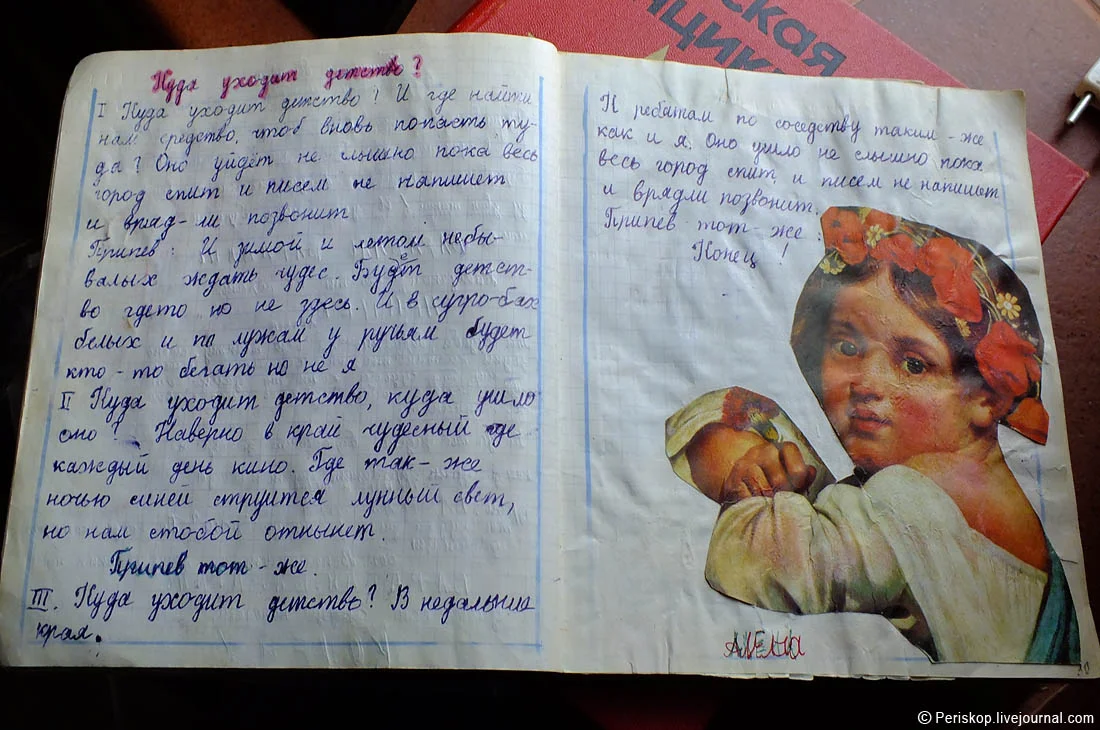 Куда уходит детство?
I Куда уходит детство! И где найти
нам средство, чтоб вновь попасть ту-
да? Оно уйдёт не слышно пока весь
город спит и писем не напишет
и вряд-ли позвонит
Припев: И зимой и летом небы-
валых ждать чудес. Будет детст-
во гдето но не здесь. И в сугро-бах
белых и по лужам у ручьям будет
кто-то бегать но не я
II Куда уходит детство, куда ушло
оно? Наверно в край чудесный где
каждый день кино. Где так-же
ночью синей струится лунный свет,
но нам стобой отныне
Припев тот-же.
III. Куда уходит детство? В недальние
края.
К ребятам по соседству таким-же
как и я. Оно ушло не слышно пока
весь город спит и писем не напишет
и врядли позвонит.
Припев тот-же.
Конец!
АЛЕНА
ская
нцикл
© Periskop.livejournal.com